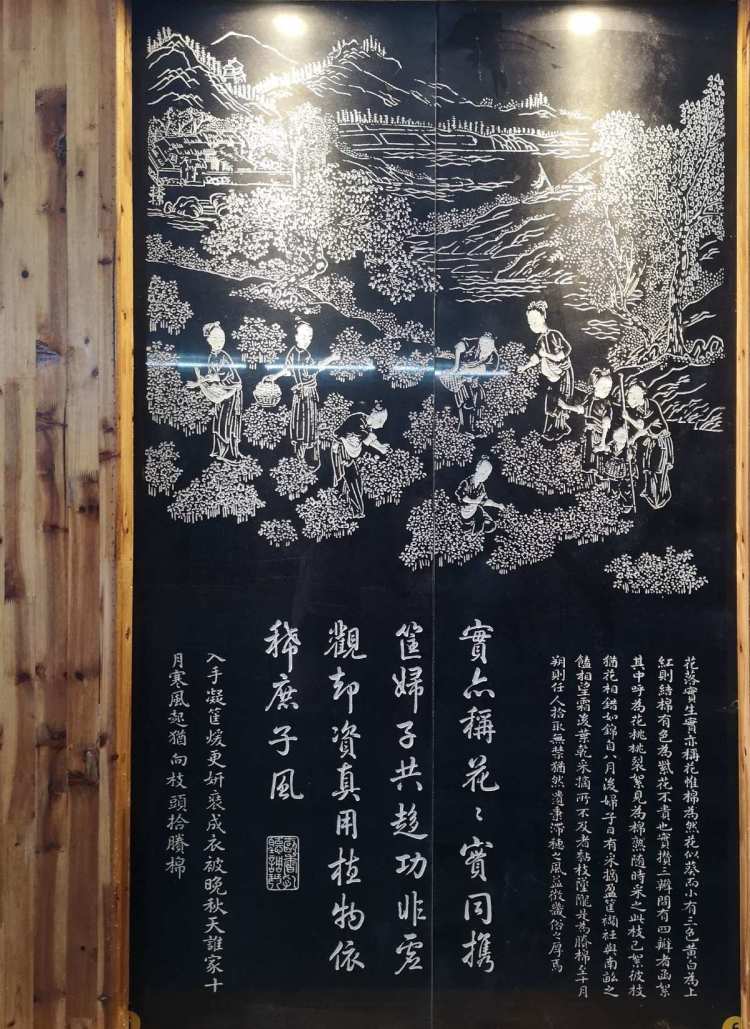 花落實生實亦稱花惟棉為然花似葵而小有三色黃白為上
紅則結棉有色為紫花不貴也實攢三瓣間有四瓣者函絮
其中呼為花桃桃裂絮見為棉熟隨時采之此枝已絮彼枝
猶花相錯如錦自八月後婦子日有采摘盈筐襭袵與南畝之
饁相望霜後葉乾采摘所不及者黏枝墜隴是為賸棉至十月
朔則任人拾取無禁猶然遺秉滯穗之風益徵畿俗之厚焉
實亦稱花〻實同携
筐婦子共趍功非虛
觀却資真用植物依
稀庶子風
入手凝筐煖更妍裒成衣被晚秋天誰家十
月寒風起猶向枝頭拾賸棉